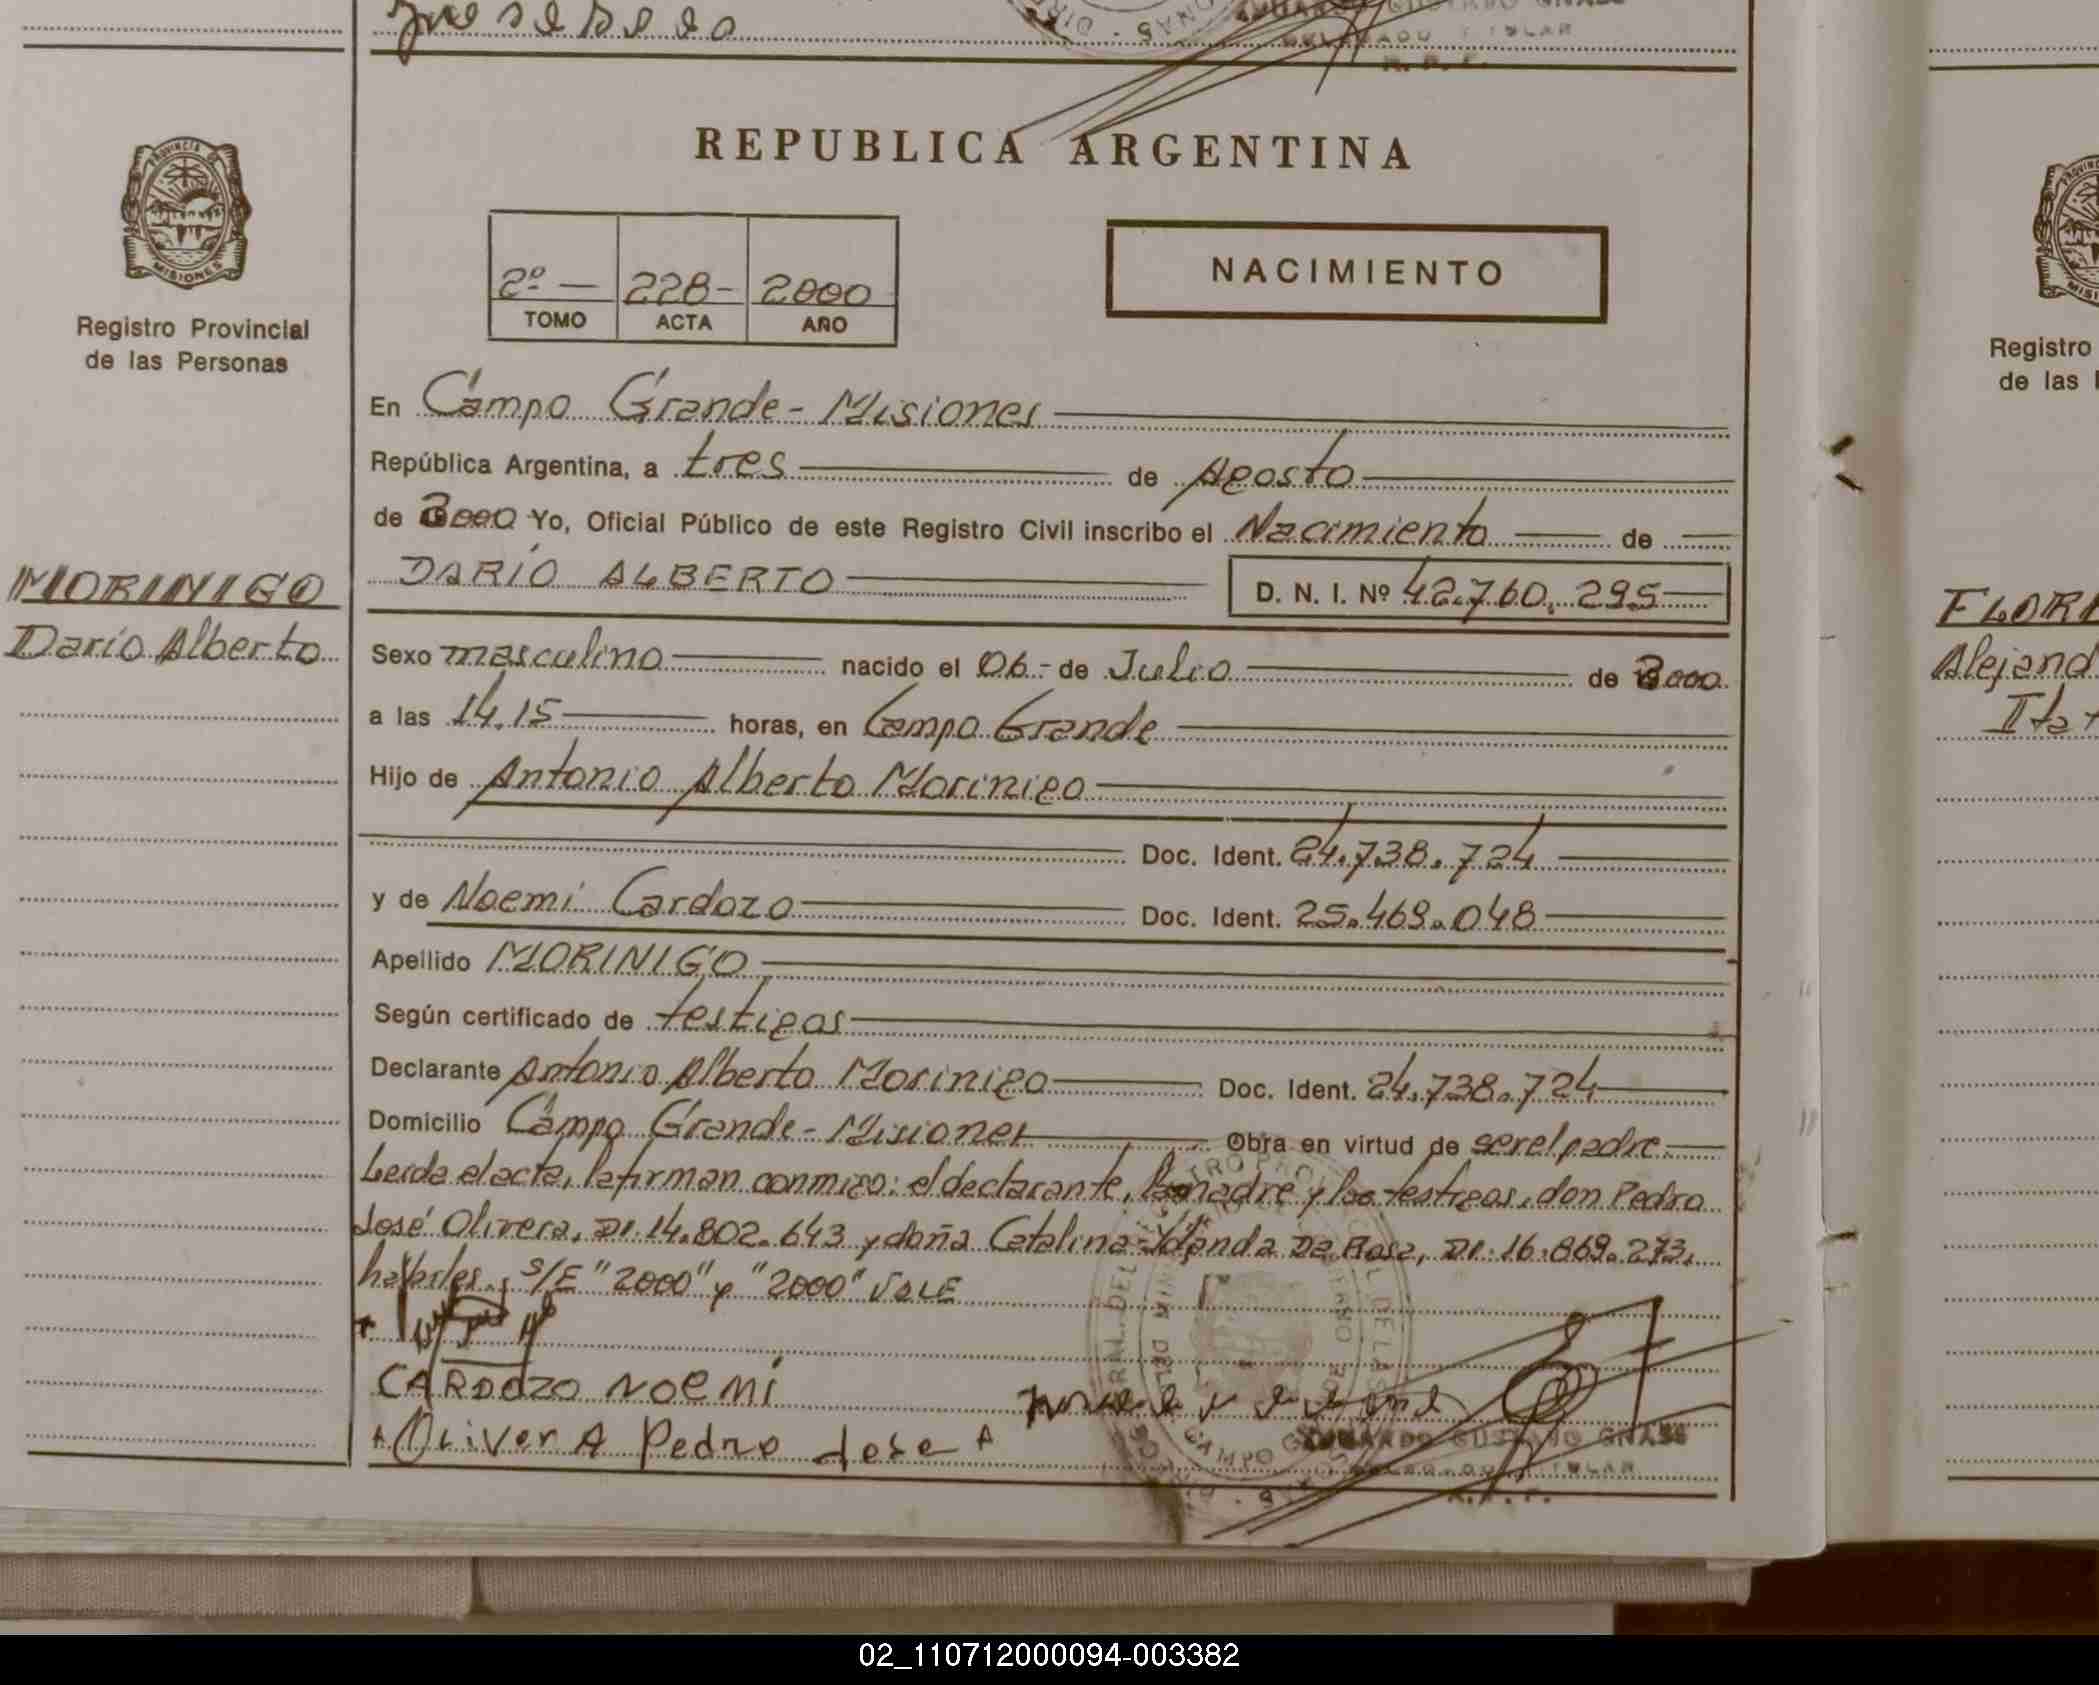 REPUBLICA ARGENTINA
PROVINCIA DE
MISIONES
Registro Provincial
de las Personas
MORINIGO
Darío Alberto
2º — 228- 2000
TOMO ACTA AÑO
NACIMIENTO
En Campo Grande - Misiones
República Argentina, a tres de Agosto
de 2000 Yo, Oficial Público de este Registro Civil inscribo el Nacimiento de
DARÍO ALBERTO D. N. I. Nº 42.760.295
Sexo masculino nacido el 06 - de Julio de 2000
a las 14.15 horas, en Campo Grande
Hijo de Antonio Alberto Morinigo
Doc. Ident. 24.738.724
y de Noemí Cardozo Doc. Ident. 25.469.048
Apellido MORINIGO
Según certificado de testigos
Declarante Antonio Alberto Morinigo Doc. Ident. 24.738.724
Domicilio Campo Grande - Misiones Obra en virtud de ser el padre
Leida el acta, la firman conmigo: el declarante, la madre y los testigos, don Pedro
José Olivera, DI. 14.802.643 y doña Catalina Yolanda Da Rosa, DI. 16.869.273,
habiles. S/E "2000" y "2000" VALE
CARDOZO NOEMÍ
OLIVERA Pedro Jose
EDUARDO GUSTAVO GNASS
DELEGADO TITULAR
R. P. P.
Registro
de las
FLOR
Alejand
Ita
02_110712000094-003382